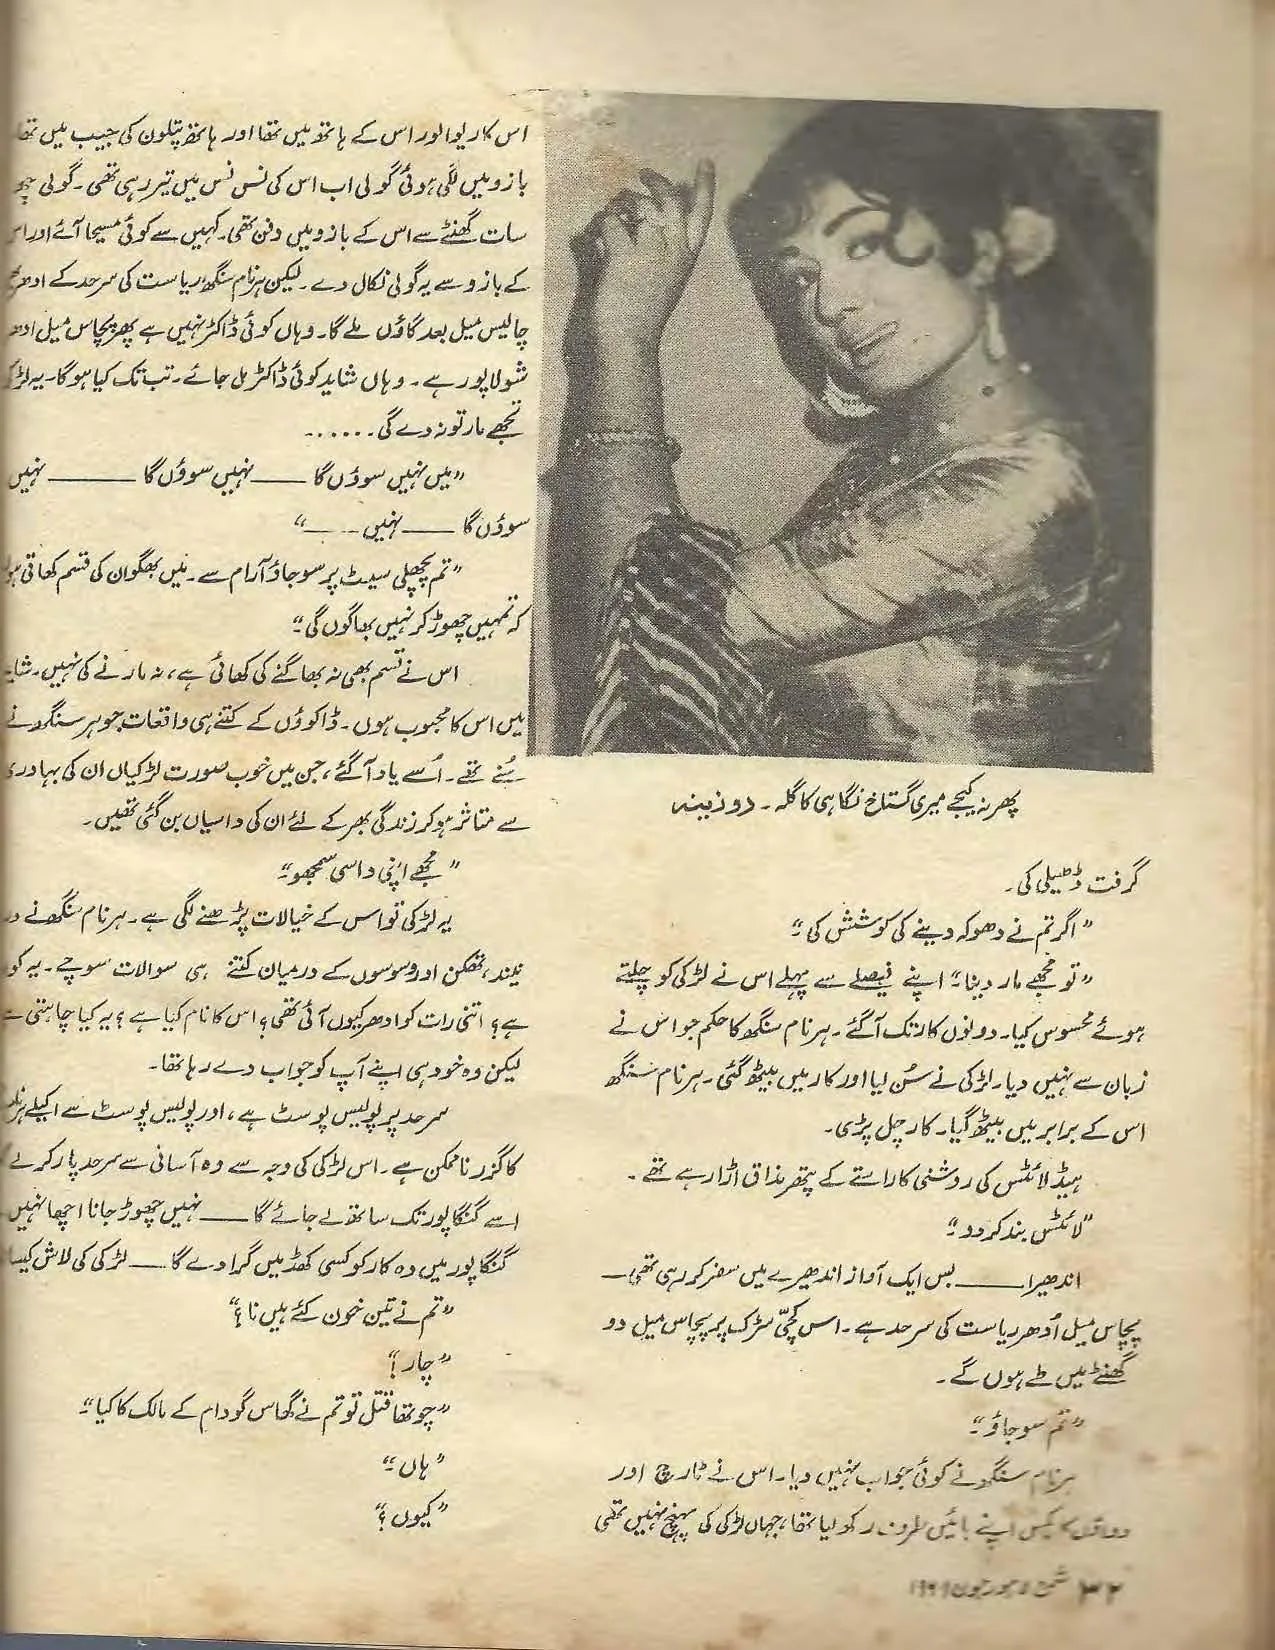 پھر نہ کیجے میری گستاخ نگاہی کا گلہ ۔ روزینہ
گرفت ڈھیلی کی۔
”اگر تم نے دھوکہ دینے کی کوشش کی۔“
”تو مجھے مار دینا۔“ اپنے فیصلے سے پہلے اس نے لڑکی کو چلتے
ہوئے محسوس کیا۔ دونوں کار تک آگئے۔ ہرنام سنگھ کا حکم جو اس نے
زبان سے نہیں دیا۔ لڑکی نے سُن لیا اور کار میں بیٹھ گئی۔ ہرنام سنگھ
اس کے برابر میں بیٹھ گیا۔ کار چل پڑی۔
ہیڈ لائٹس کی روشنی کا راستے کے پتھر مذاق اڑا رہے تھے۔
”لائٹس بند کر دو۔“
اندھیرا —— بس ایک آواز اندھیرے میں سفر کر رہی تھی—
پچاس میل اُدھر ریاست کی سرحد ہے۔ اس کچّی سڑک پر پچاس میل دو
گھنٹے میں طے ہوں گے۔
”تم سو جاؤ۔“
ہرنام سنگھ نے کوئی جواب نہیں دیا۔ اس نے ٹارچ اور
دواؤں کا بکس اپنے بائیں طرف رکھ لیا تھا، جہاں لڑکی کی پہنچ نہیں تھی
اس کا ریوالور اس کے ہاتھ میں تھا اور ہاتھ پتلون کی جیب میں تھا
بازو میں لگی ہوئی گولی اب اس کی نس نس میں تیر رہی تھی۔ گولی
سات گھنٹے سے اس کے بازو میں دفن تھی۔ کہیں سے کوئی مسیحا آئے اور
کے بازو سے یہ گولی نکال دے۔ لیکن ہرنام سنگھ ریاست کی سرحد کے ادھر
چالیس میل بعد گاؤں ملے گا۔ وہاں کوئی ڈاکٹر نہیں ہے پھر پچاس میل
شولاپور ہے۔ وہاں شاید کوئی ڈاکٹر مل جائے۔ تب تک کیا ہوگا۔ یہ
تجھے مار تو نہ دے گی......
”میں نہیں سوؤں گا —— نہیں سوؤں گا —— نہیں
سوؤں گا —— نہیں ——“
”تم پچھلی سیٹ پر سو جاؤ آرام سے۔ میں بھگوان کی قسم کھاتی
کہ تمہیں چھوڑ کر نہیں بھاگوں گی۔“
اس نے قسم بھی نہ بھاگنے کی کھائی ہے، نہ مارنے کی نہیں۔
میں اس کا محبوب ہوں۔ ڈاکوؤں کے کتنے ہی واقعات جو ہر سنگھ نے
سُنے تھے۔ اُسے یاد آگئے، جن میں خوب صورت لڑکیاں ان کی بہادری
سے متاثر ہو کر زندگی بھر کے لئے ان کی داسیاں بن گئی تھیں۔
”مجھے اپنی داسی سمجھو۔“
یہ لڑکی تو اس کے خیالات پڑھنے لگی ہے۔ ہرنام سنگھ نے
نیند، تھکن اور وسوسوں کے درمیان کتنے ہی سوالات سوچے۔ یہ
ہے؟ اتنی رات کو ادھر کیوں آئی تھی؟ اس کا نام کیا ہے؟ یہ کیا چاہتی
لیکن وہ خود ہی اپنے آپ کو جواب دے رہا تھا۔
سرحد پر پولیس پوسٹ ہے، اور پولیس پوسٹ سے اکیلے
کا گزر ناممکن ہے۔ اس لڑکی کی وجہ سے وہ آسانی سے سرحد پار کر لے
اسے گنگاپور تک ساتھ لے جائے گا —— نہیں چھوڑ جانا اچھا نہیں
گنگاپور میں وہ کار کو کسی کھڈ میں گرا دے گا —— لڑکی کی لاش
”تم نے تین خون کئے ہیں نا؟“
”چار!“
”چوتھا قتل تو تم نے گھاس گودام کے مالک کا کیا۔“
”ہاں۔“
”کیوں؟“
۳۲ شمع لاہور جون